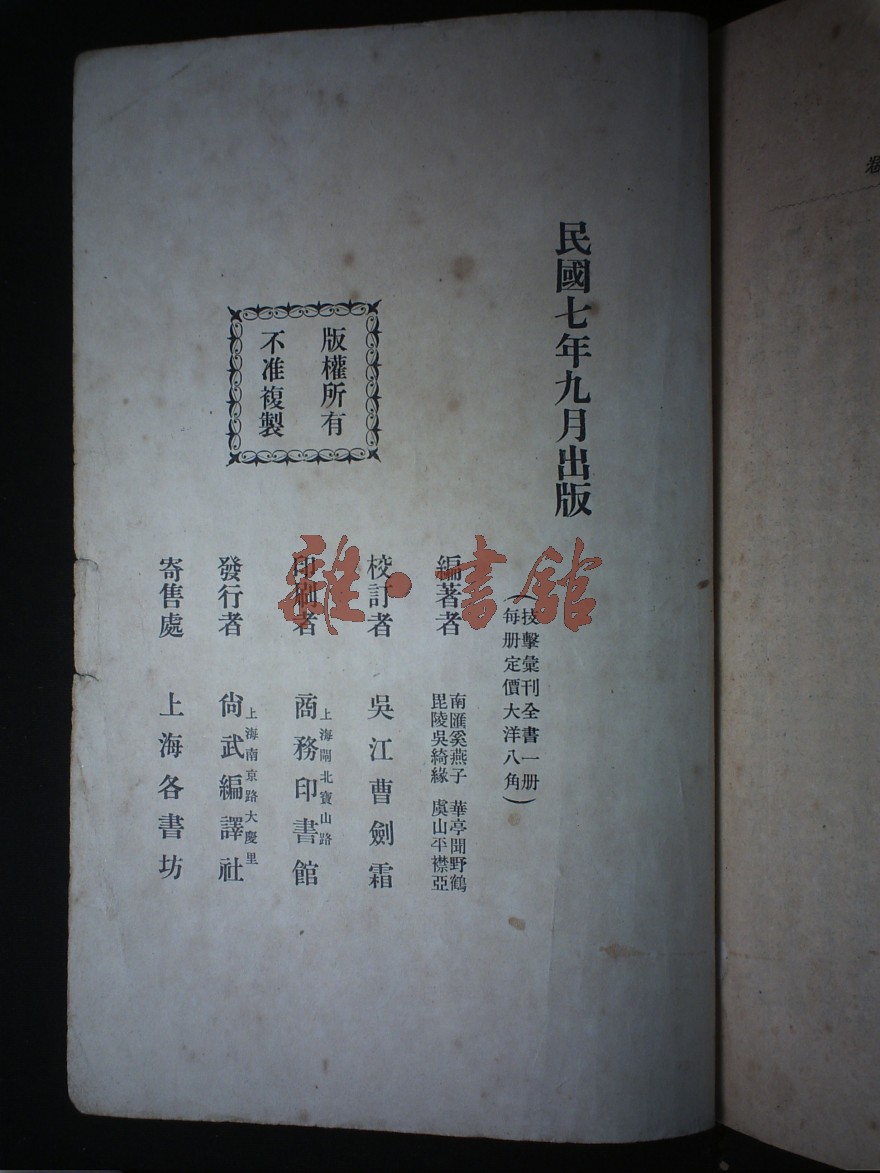 民國七年九月出版
版權所有
不准複製
(技擊彙刊全書一册
每册定價大洋八角)
編著者
南匯奚燕子 華亭聞野鶴
毘陵吳綺緣 虞山平襟亞
校訂者 吳江曹劍霜
印刷者 上海閘北寶山路
商務印書館
發行者 上海南京路大慶里
尙武編譯社
寄售處 上海各書坊
雜·書館
卷